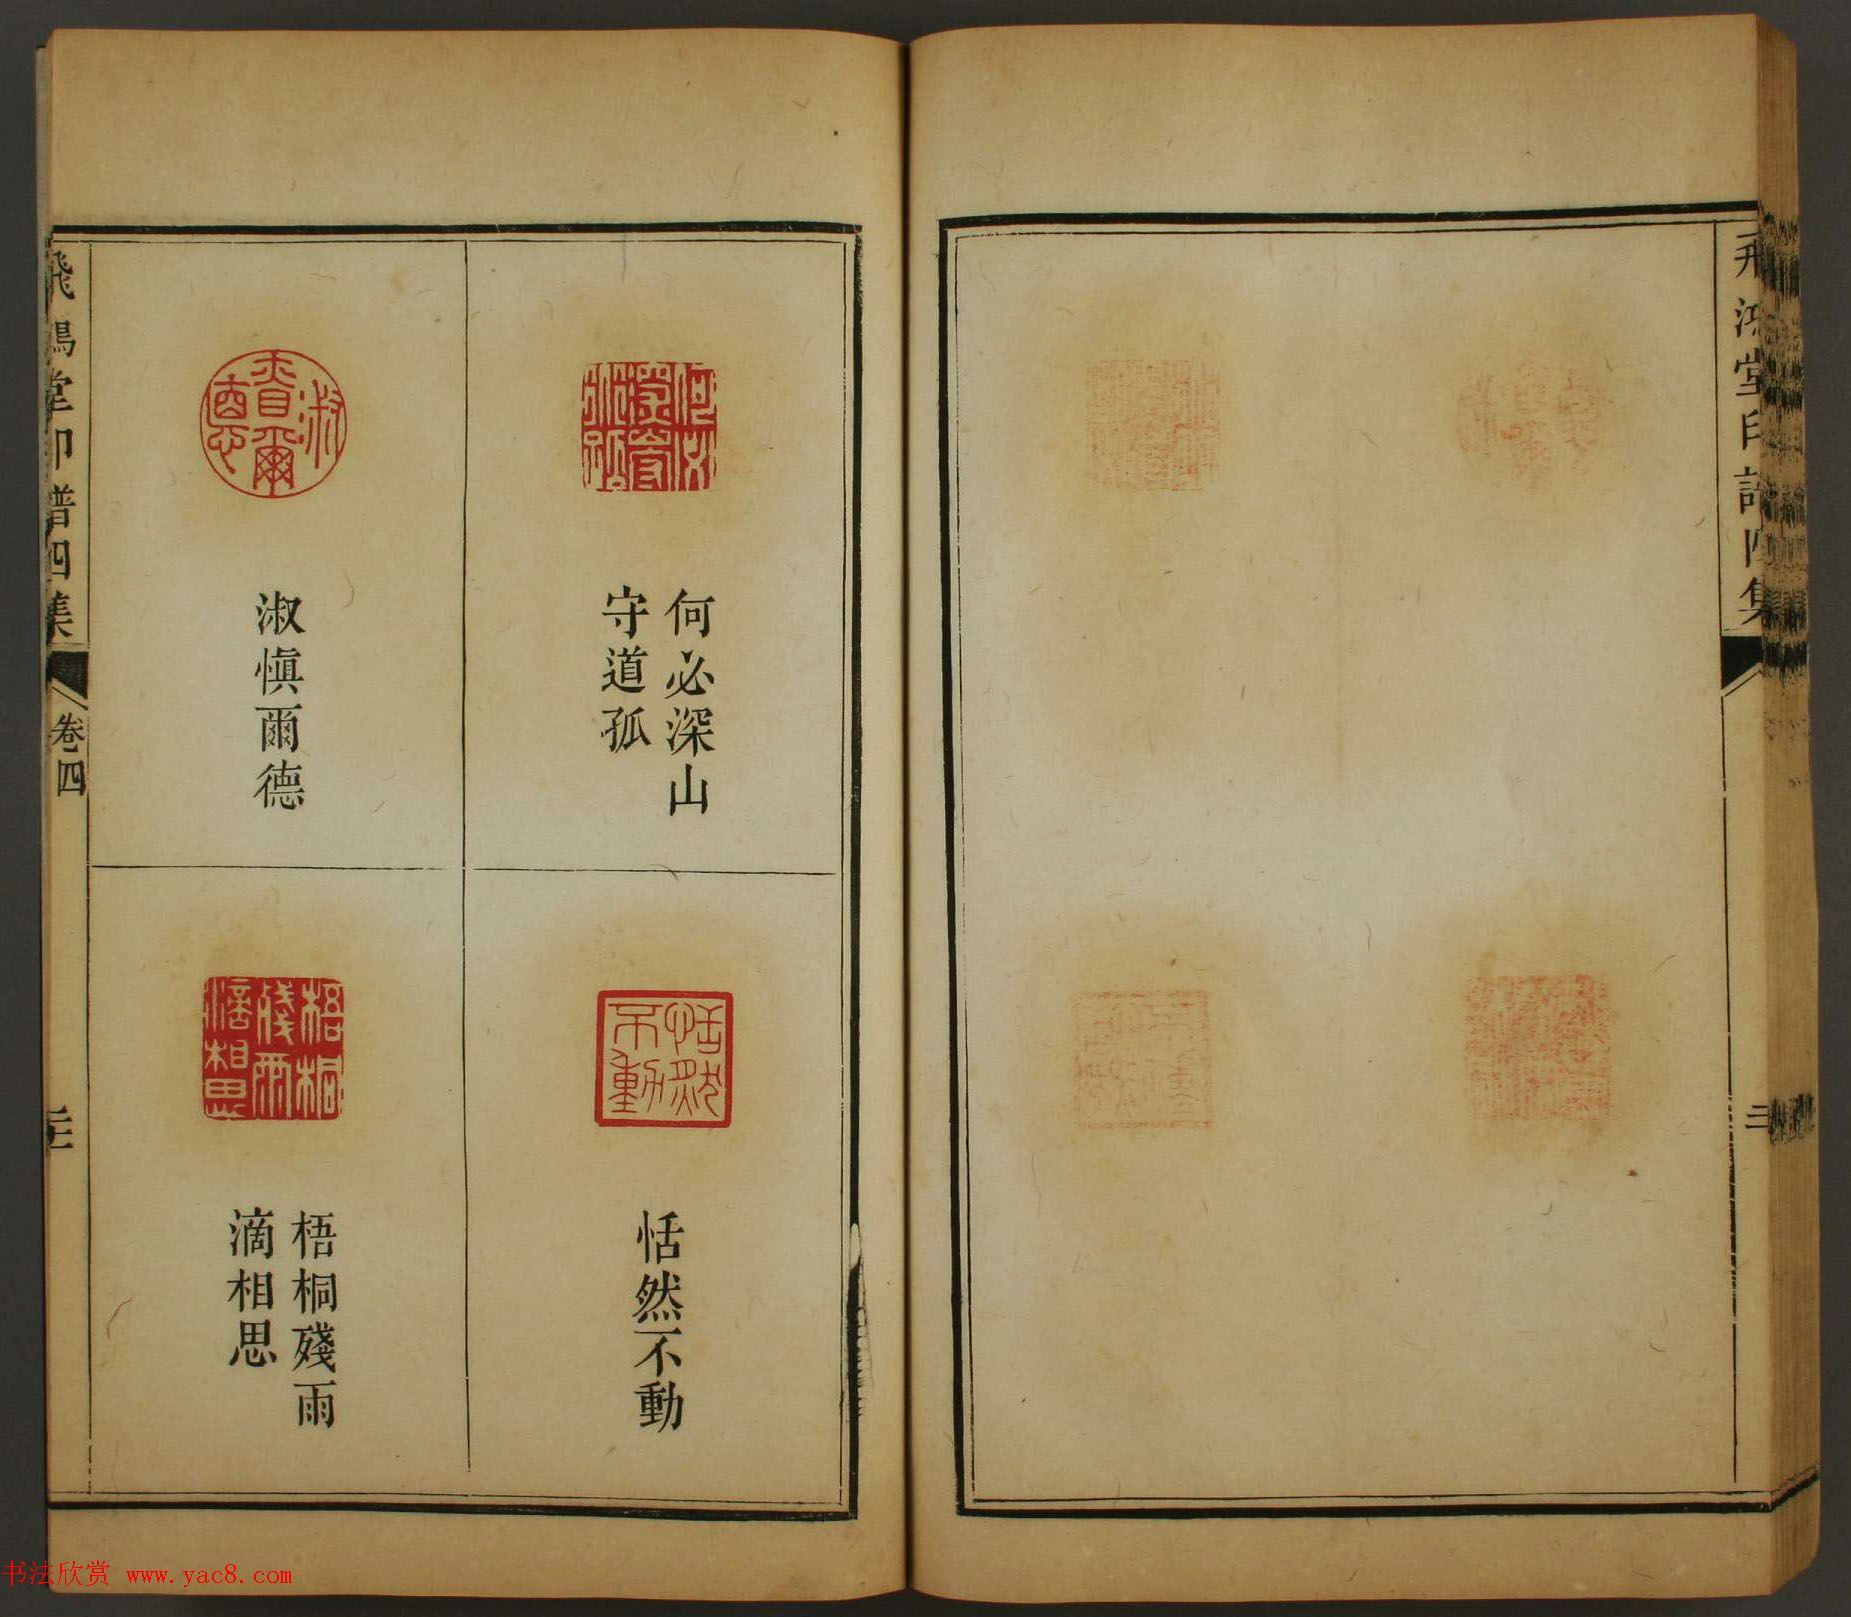 飛鴻堂印譜四集
二
何必深山
守道孤
恬然不動
淑慎爾德
梧桐殘雨
滴相思
飛鴻堂印譜四集
卷四
书法欣赏 www.yac8.com